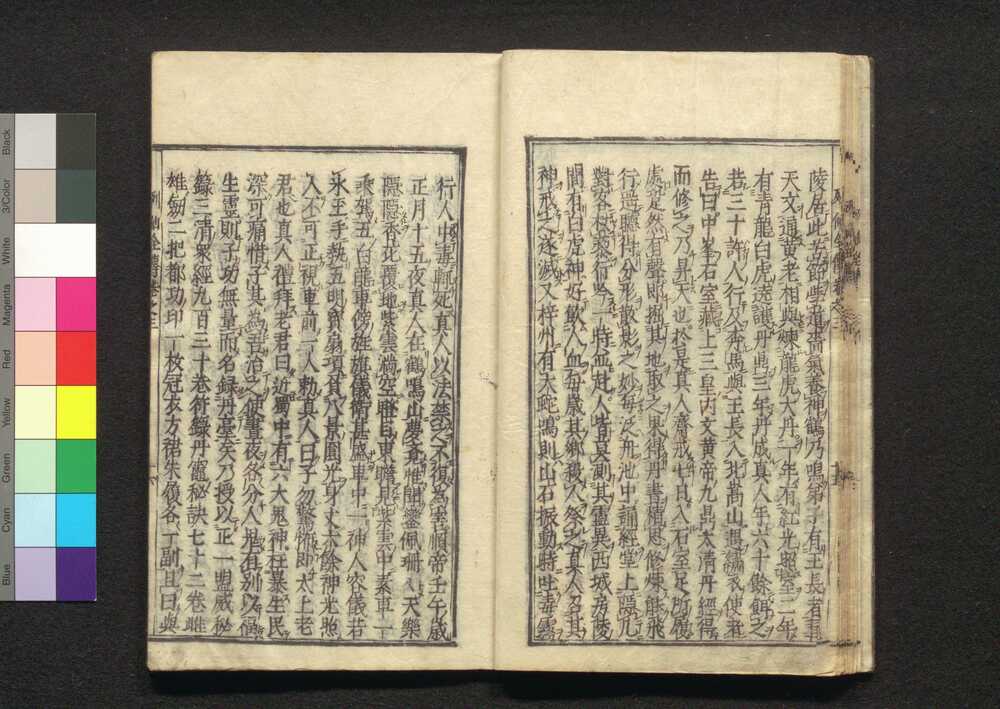 陵居此苦節學道清氣養神鶴乃鳴弟子有王長者事
天文通黄老相與煉龍虎大丹一年有紅光照室二年
有青龍白虎遶護丹鼎三年丹成真人年六十餘餌之
若三十許人行及奔馬與王長入北嵩山遇繡衣使者
告曰中峯石室藏上三皇内文黄帝九鼎太清丹經得
而修之乃昇天也於是真人齋戒七日入石室足所履
處跫然有聲即掘其地取之果得丹書精思修煉能飛
行遙聽得分形散影之妙每泛舟池中誦經堂上隱几
對客杖藜行吟一時並赴人皆莫測其靈異西城房陵
間有白虎神好飲人血每歲其鄉殺人祭之真人召其
神戒之遂滅又梓州有大蛇鳴則山石振動時吐毒霧
行人中毒輒死真人以法禁之不復為害順帝壬午歲
正月十五夜真人在鶴鳴山夢寤惟聞鑾佩珊々天樂
隱隱香花覆地紫雲滿空瞻見東瞻見紫雲中素車一
乘駕五白龍車傍旌旗儀衛甚盛車中一神人容儀若
氷玉手執五明寶扇項負八景圓光身丈六餘神光照
人不可正視車前一人勅真人曰子勿驚怖即太上老
君也真人禮拜老君曰近蜀中有六大鬼神枉暴生民
深可痛惜子其為吾治之使晝夜各分人鬼有別以福
生靈則子功無量而名錄丹臺矣乃授以正一盟威秘
籙三清衆經九百三十卷符籙丹竈秘訣七十二卷雌
雄劍二把都功印一枚冠衣方裙朱履各一副且曰與
Blue
Cyan
Green
Yellow
Red
Magenta
White
3/Color
Black